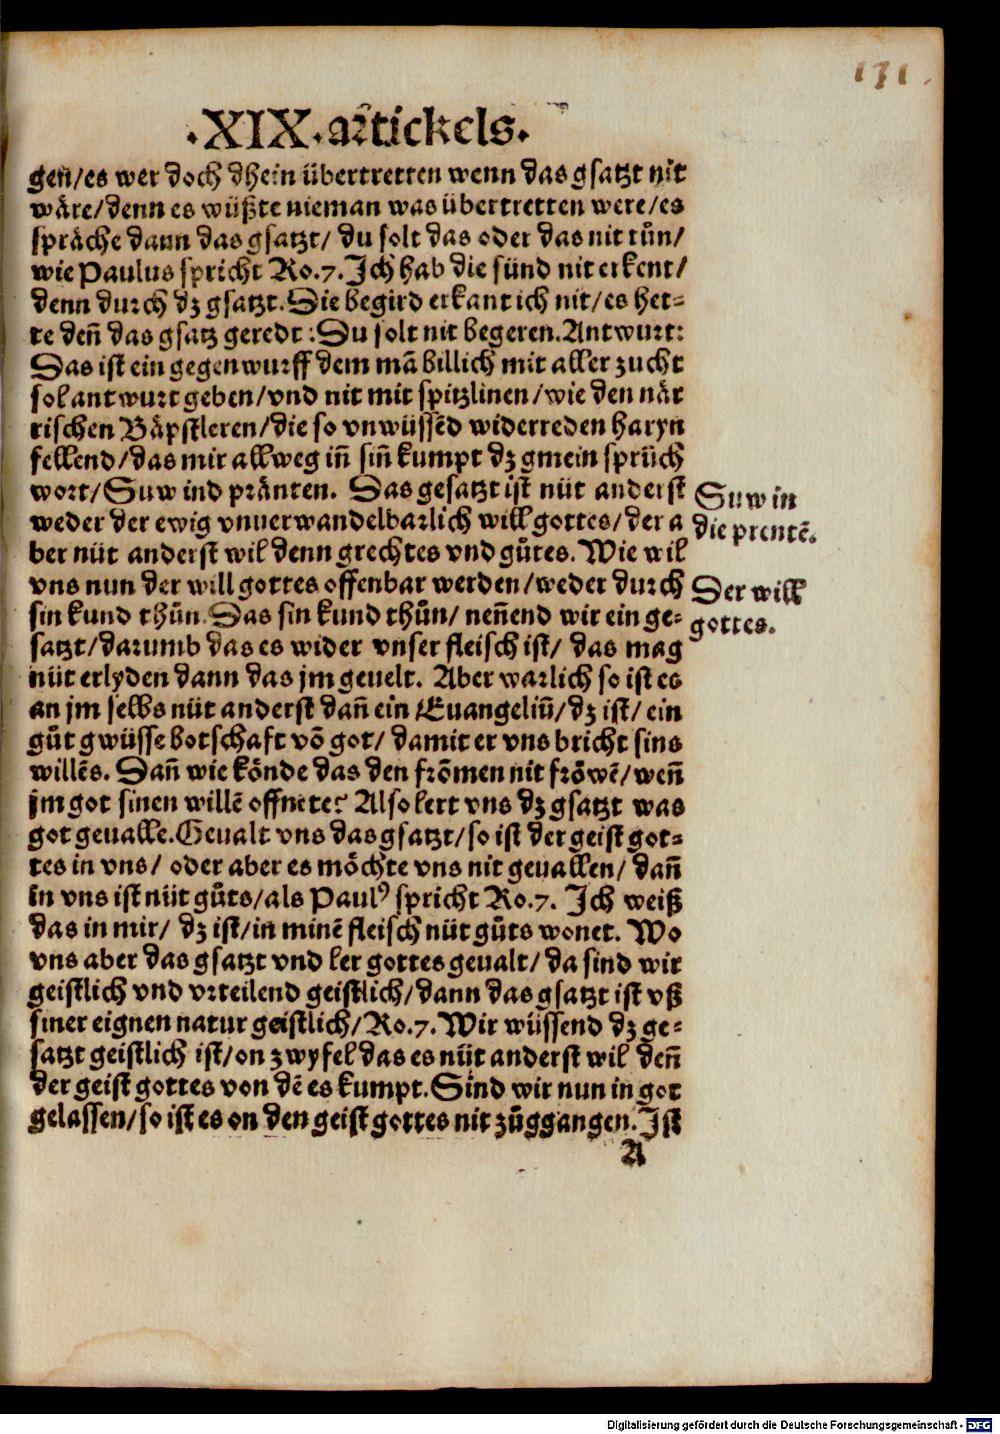 171.
.XIX.artickels.
gen̄/es wer doch dhein übertretten wenn das gsatzt nit
wäre/denn es wüßte nieman was übertretten were/es
spräche dann das gsatzt/ du solt das oder das nit tůn/
wie Paulus spricht Ro.7. Ich hab die sünd nit erkent/
denn durch dz gsatzt. Die begird erkant ich nit/es het-
te den̄ das gsatz geredt: Du solt nit begeren. Antwurt:
Das ist ein gegenwurff dem mā billich mit aller zucht
sol antwurt geben/vnd nit mit spitzlinen/wie den när
rischen Bäpstleren/die so vnwüssēd widerreden haryn
fellend/das mir allweg in̄ sin̄ kumpt dz gmein sprüch
wort/Suw ind pränten. Das gesatzt ist nüt anderst
weder der ewig vnuerwandelbarlich will gottes/der a
ber nüt anderst wil denn grechtes vnd gůtes. Wie wil
vns nun der will gottes offenbar werden/weder durch
sin kund thůn. Das sin kund thůn/ nen̄end wir ein ge-
satzt/darumb das es wider vnser fleisch ist/ das mag
nüt erlyden dann das jm geuelt. Aber warlich so ist es
an jm selbs nüt anderst dan̄ ein Euangeliū/dz ist/ ein
gůt gwüsse botschaft vō got/ damit er vns bricht sins
willēs. Dan̄ wie könde das den frōmen nit fröwē/wen̄
jm got sinen willē offnete? Also lert vns dz gsatzt was
got geualle. Geualt vns das gsatzt/so ist der geist got-
tes in vns/ oder aber es möchte vns nit geuallen/ dan̄
in vns ist nüt gůts/als Paulꝰ spricht Ro.7. Ich weiß
das in mir/ dz ist/in minē fleisch nüt gůts wonet. Wo
vns aber das gsatzt vnd ler gottes geualt/da sind wir
geistlich vnd vrteilend geistlich/dann das gsatzt ist vß
siner eignen natur geistlich/Ro.7. Wir wüssend dz ge-
satzt geistlich ist/on zwyfel das es nüt anderst wil den̄
der geist gottes von dē es kumpt. Sind wir nun in got
gelassen/so ist es on den geist gottes nit zůggangen. Ist
A
Suw in
die prentē.
Der will
gottes.
Digitalisierung gefördert durch die Deutsche Forschungsgemeinschaft - DFG